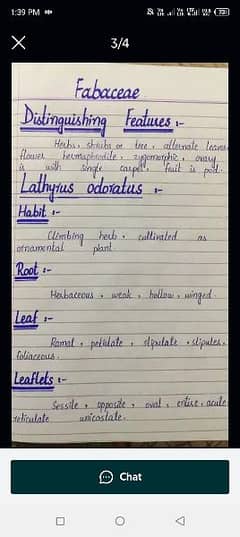 1:39 PM
3/4
Fabaceae
Distinguishing Features :-
Herbs, shrubs or tree, alternate leaves
flower hermaphrodite, zygomorphic, ovary
is with single carpel, fruit is pod.
Lathyrus odoratus :-
Habit :-
Climbing herb, cultivated as
ornamental plant.
Root :-
Herbaceous, weak, hollow, winged.
Leaf :-
Ramal, petiolate, stipulate, stipules,
foliaceous.
Leaflets :-
Sessile, opposite, oval, entire, acute
reticulate unicostate.
Chat